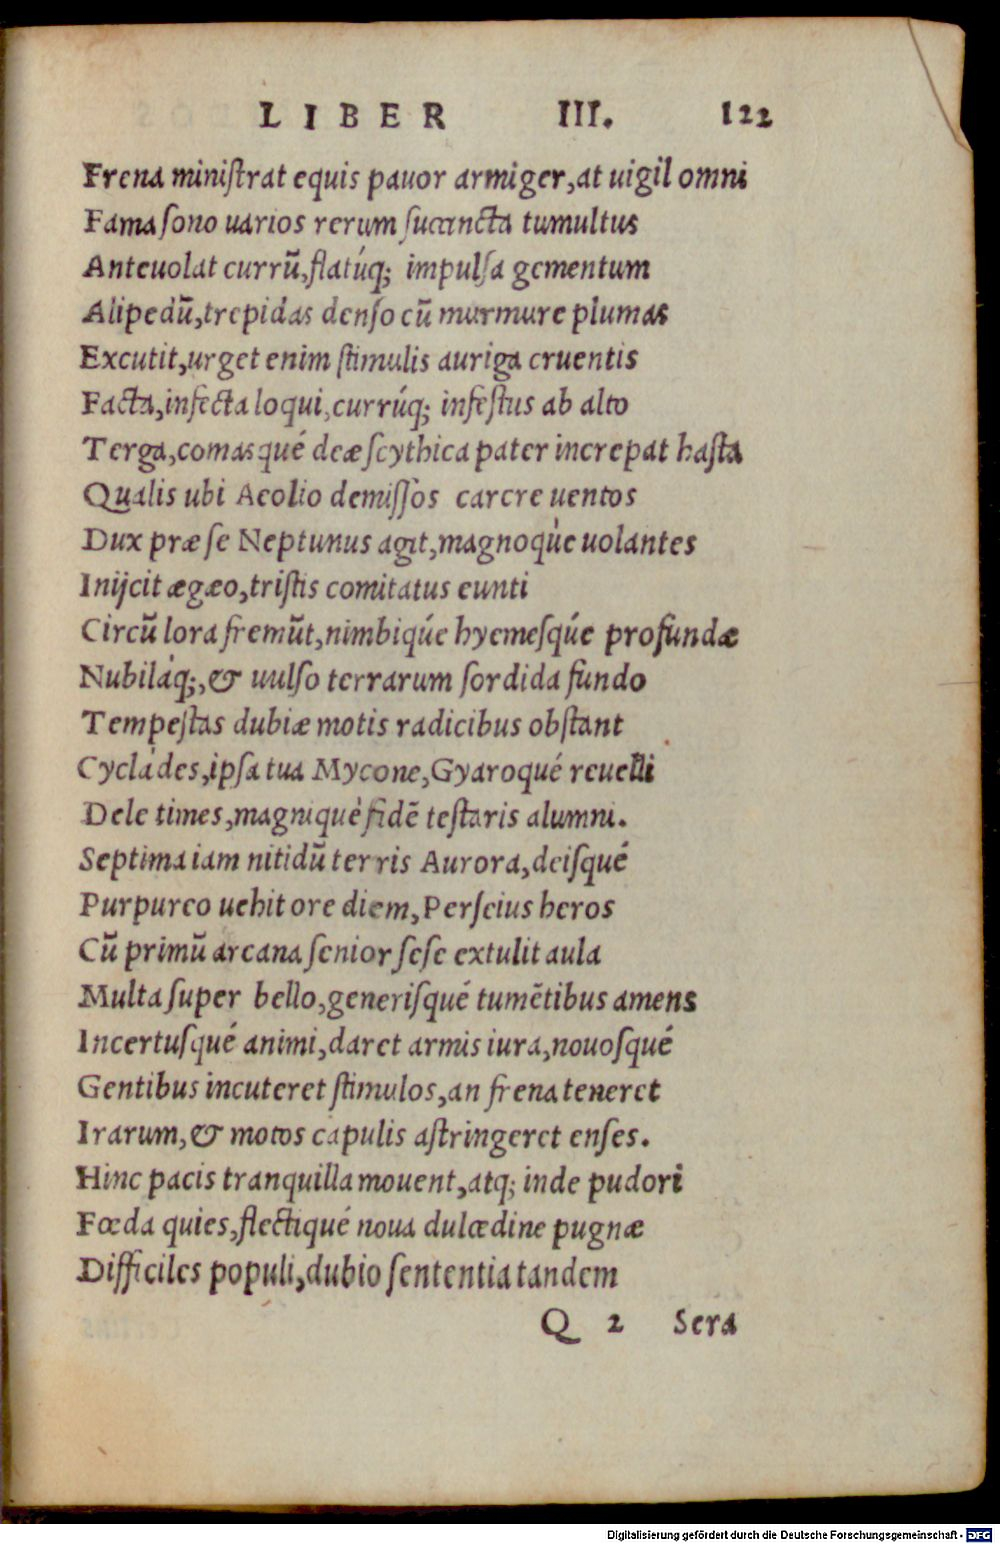 LIBER III. 122
Frena miniſtrat equis pauor armiger,at uigil omni
Fama ſono uarios rerum ſuccincta tumultus
Anteuolat currū,flatúq; impulſa gementum
Alipedū,trepidas denſo cū murmure plumas
Excutit,urget enim ſtimulis auriga cruentis
Facta,infecta loqui,currúq; infeſtus ab alto
Terga,comasqué deæ ſcythica pater increpat haſta
Qualis ubi Aeolio demiſſos carcre uentos
Dux præ ſe Neptunus agit,magnoqùe uolantes
Inijcit ægæo,triſtis comitatus eunti
Circū lora fremūt,nimbiqúe hyemeſqúe profundæ
Nubiláq;,& uulſo terrarum ſordida fundo
Tempeſtas dubiæ motis radicibus obſtant
Cycládes,ipſa tua Mycone,Gyaroqué reuelli
Dele times,magniquè fidē teſtaris alumni.
Septima iam nitidū terris Aurora,deiſqué
Purpureo uehit ore diem,Perſeius heros
Cū primū arcana ſenior ſeſe extulit aula
Multa ſuper bello,generiſqué tumētibus amens
Incertuſqué animi,daret armis iura,nouoſqué
Gentibus incuteret ſtimulos,an frena teneret
Irarum,& motos capulis aſtringeret enſes.
Hinc pacis tranquilla mouent,atq; inde pudori
Fœda quies,flectiqué noua dulcedine pugnæ
Difficiles populi,dubio ſententia tandem
Q 2 Sera
Digitalisierung gefördert durch die Deutsche Forschungsgemeinschaft - DFG